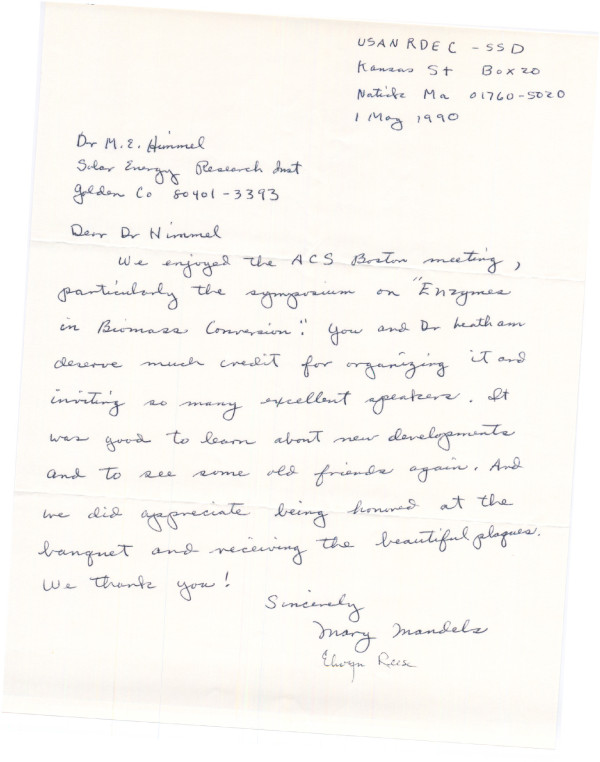 USANRDEC - SSD
Kansas St Box 20
Natick Ma 01760-5020
1 May 1990
Dr M. E. Himmel
Solar Energy Research Inst
Golden Co 80401-3393
Dear Dr Himmel
We enjoyed the ACS Boston meeting,
particularly the symposium on "Enzymes
in Biomass Conversion". You and Dr Leatham
deserve much credit for organizing it and
inviting so many excellent speakers. It
was good to learn about new developments
and to see some old friends again. And
we did appreciate being honored at the
banquet and receiving the beautiful plaques.
We thank you!
Sincerely
Mary Mandels
Elwyn Reese